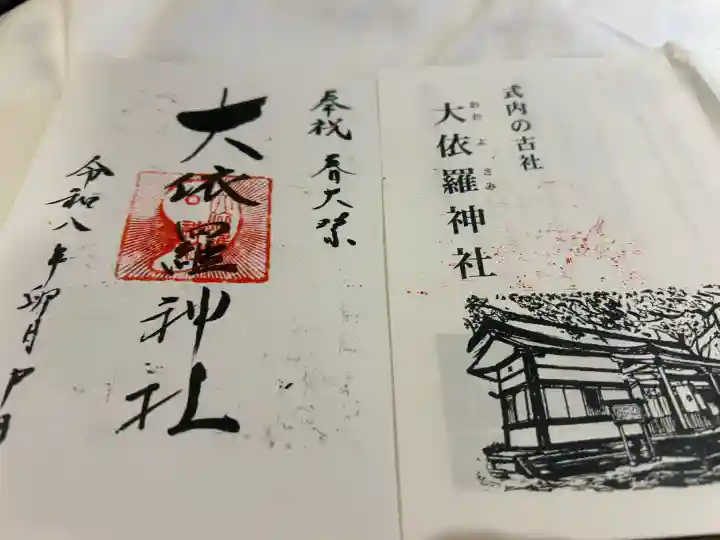 奉祝 春大祭
大依羅神社
令和八年卯月
式内の古社
大依羅神社
おお よ さみ